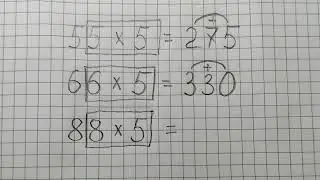 55 × 5 = 275
66 × 5 = 330
88 × 5 =